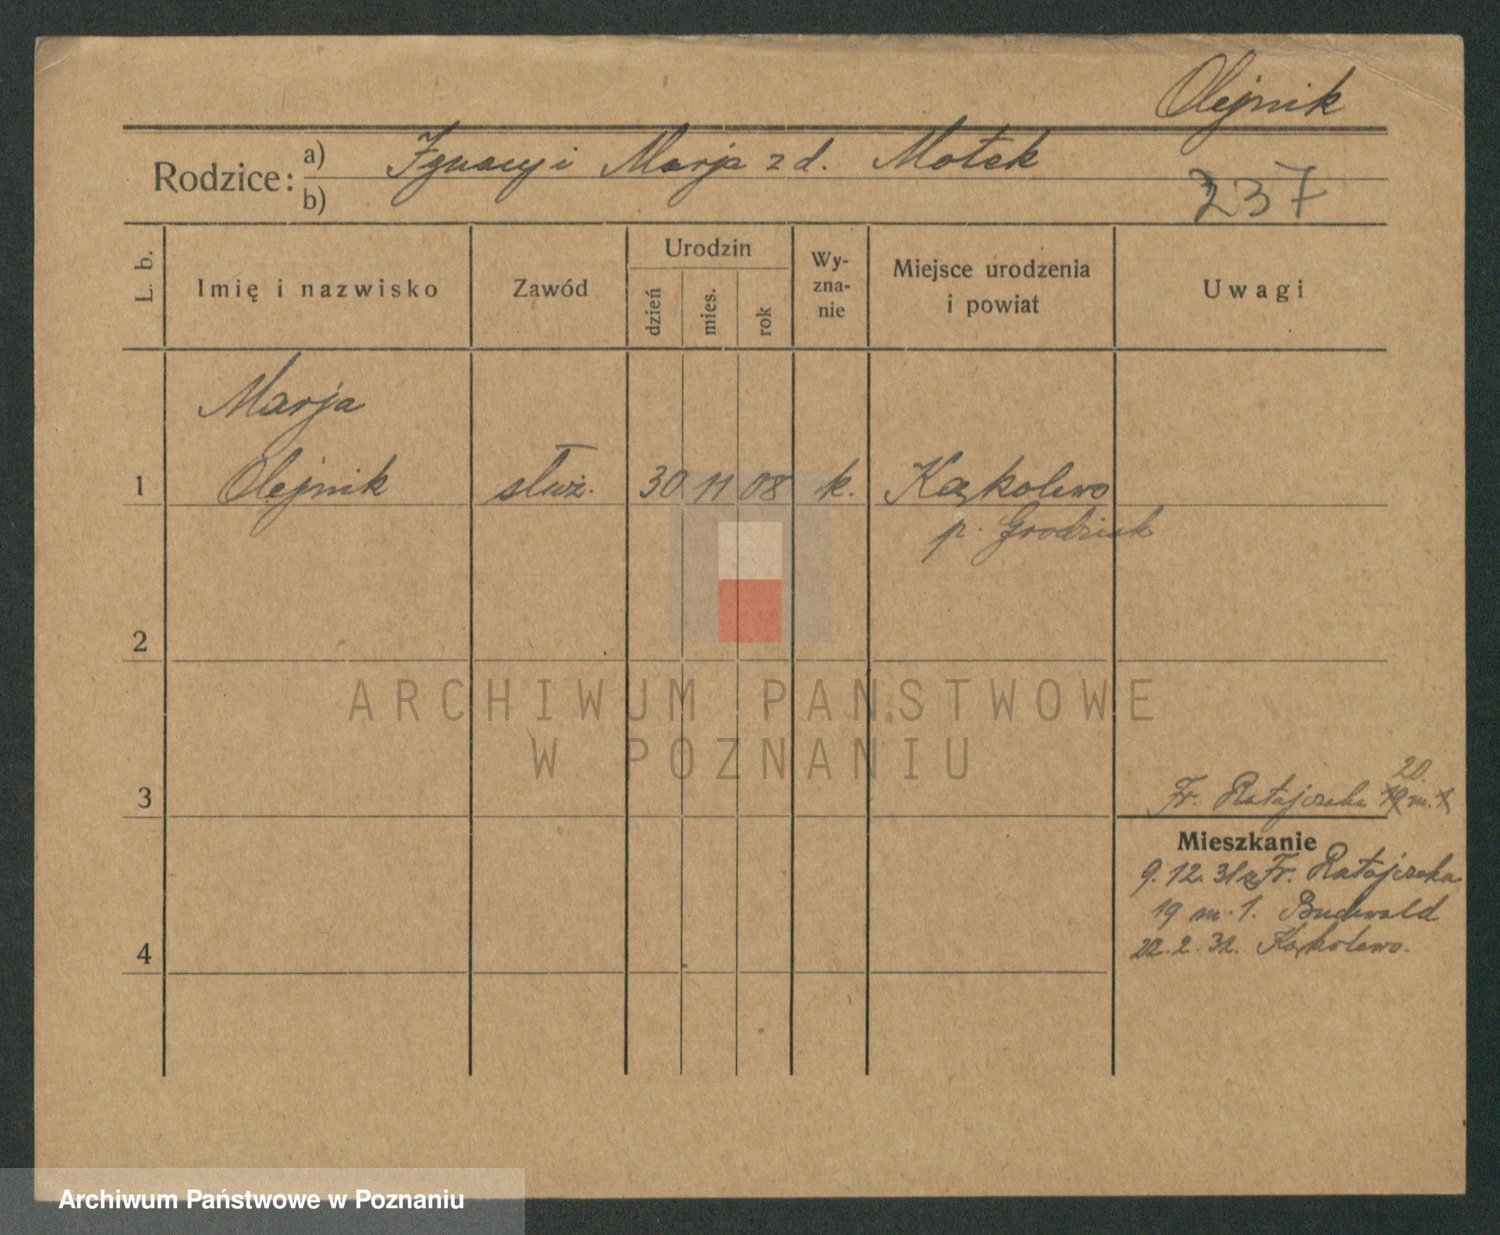 Olejnik
Rodzice: a) Ignacy i Marja z d. Motek
b)
237
L. b.
Imię i nazwisko
Zawód
Urodzin
dzień
mies.
rok
Wy-
zna-
nie
Miejsce urodzenia
i powiat
Uwagi
Marja
1 Olejnik służ. 30 11 08 k. Kąkolewo
p. Grodzisk
2
ARCHIWUM PAŃSTWOWE
W POZNANIU
20.
3 Fr. Ratajczaka m.
Mieszkanie
9.12.31 Fr. Ratajczaka
19 m. 1. Buchwald
4 22.2.32. Kąkolewo.
Archiwum Państwowe w Poznaniu